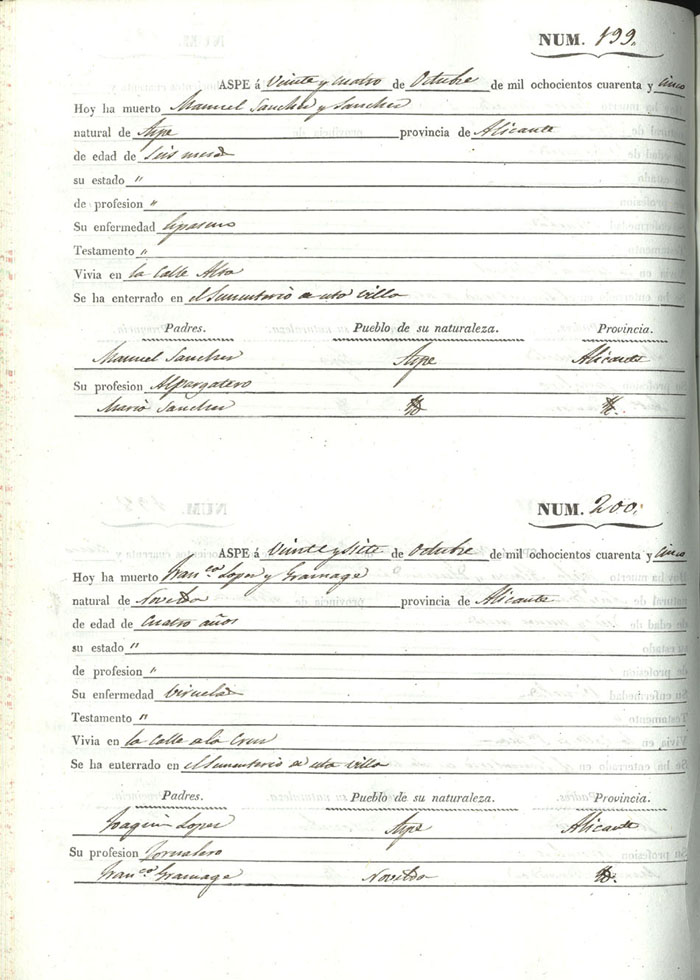 NUM. 199.
ASPE á Veinte y cuatro de Octubre de mil ochocientos cuarenta y cinco
Hoy ha muerto Manuel Sanchez y Sanchez
natural de Aspe provincia de Alicante
de edad de seis meses
su estado "
de profesion "
Su enfermedad
Testamento "
Vivia en la Calle Alta
Se ha enterrado en el Sementerio de esta Villa
Padres. Pueblo de su naturaleza. Provincia.
Manuel Sanchez Aspe Alicante
Su profesion Alpargatero
Maria Sanchez
NUM. 200.
ASPE á Veinte y Siete de Octubre de mil ochocientos cuarenta y cinco
Hoy ha muerto Franco. Lopez y Gramage
natural de Novelda provincia de Alicante
de edad de Cuatro años
su estado "
de profesion "
Su enfermedad Viruelas
Testamento "
Vivia en la Calle de la Cruz
Se ha enterrado en el Sementerio de esta Villa
Padres. Pueblo de su naturaleza. Provincia.
Joaquin Lopez Aspe Alicante
Su profesion Jornalero
Franca. Gramage Novelda